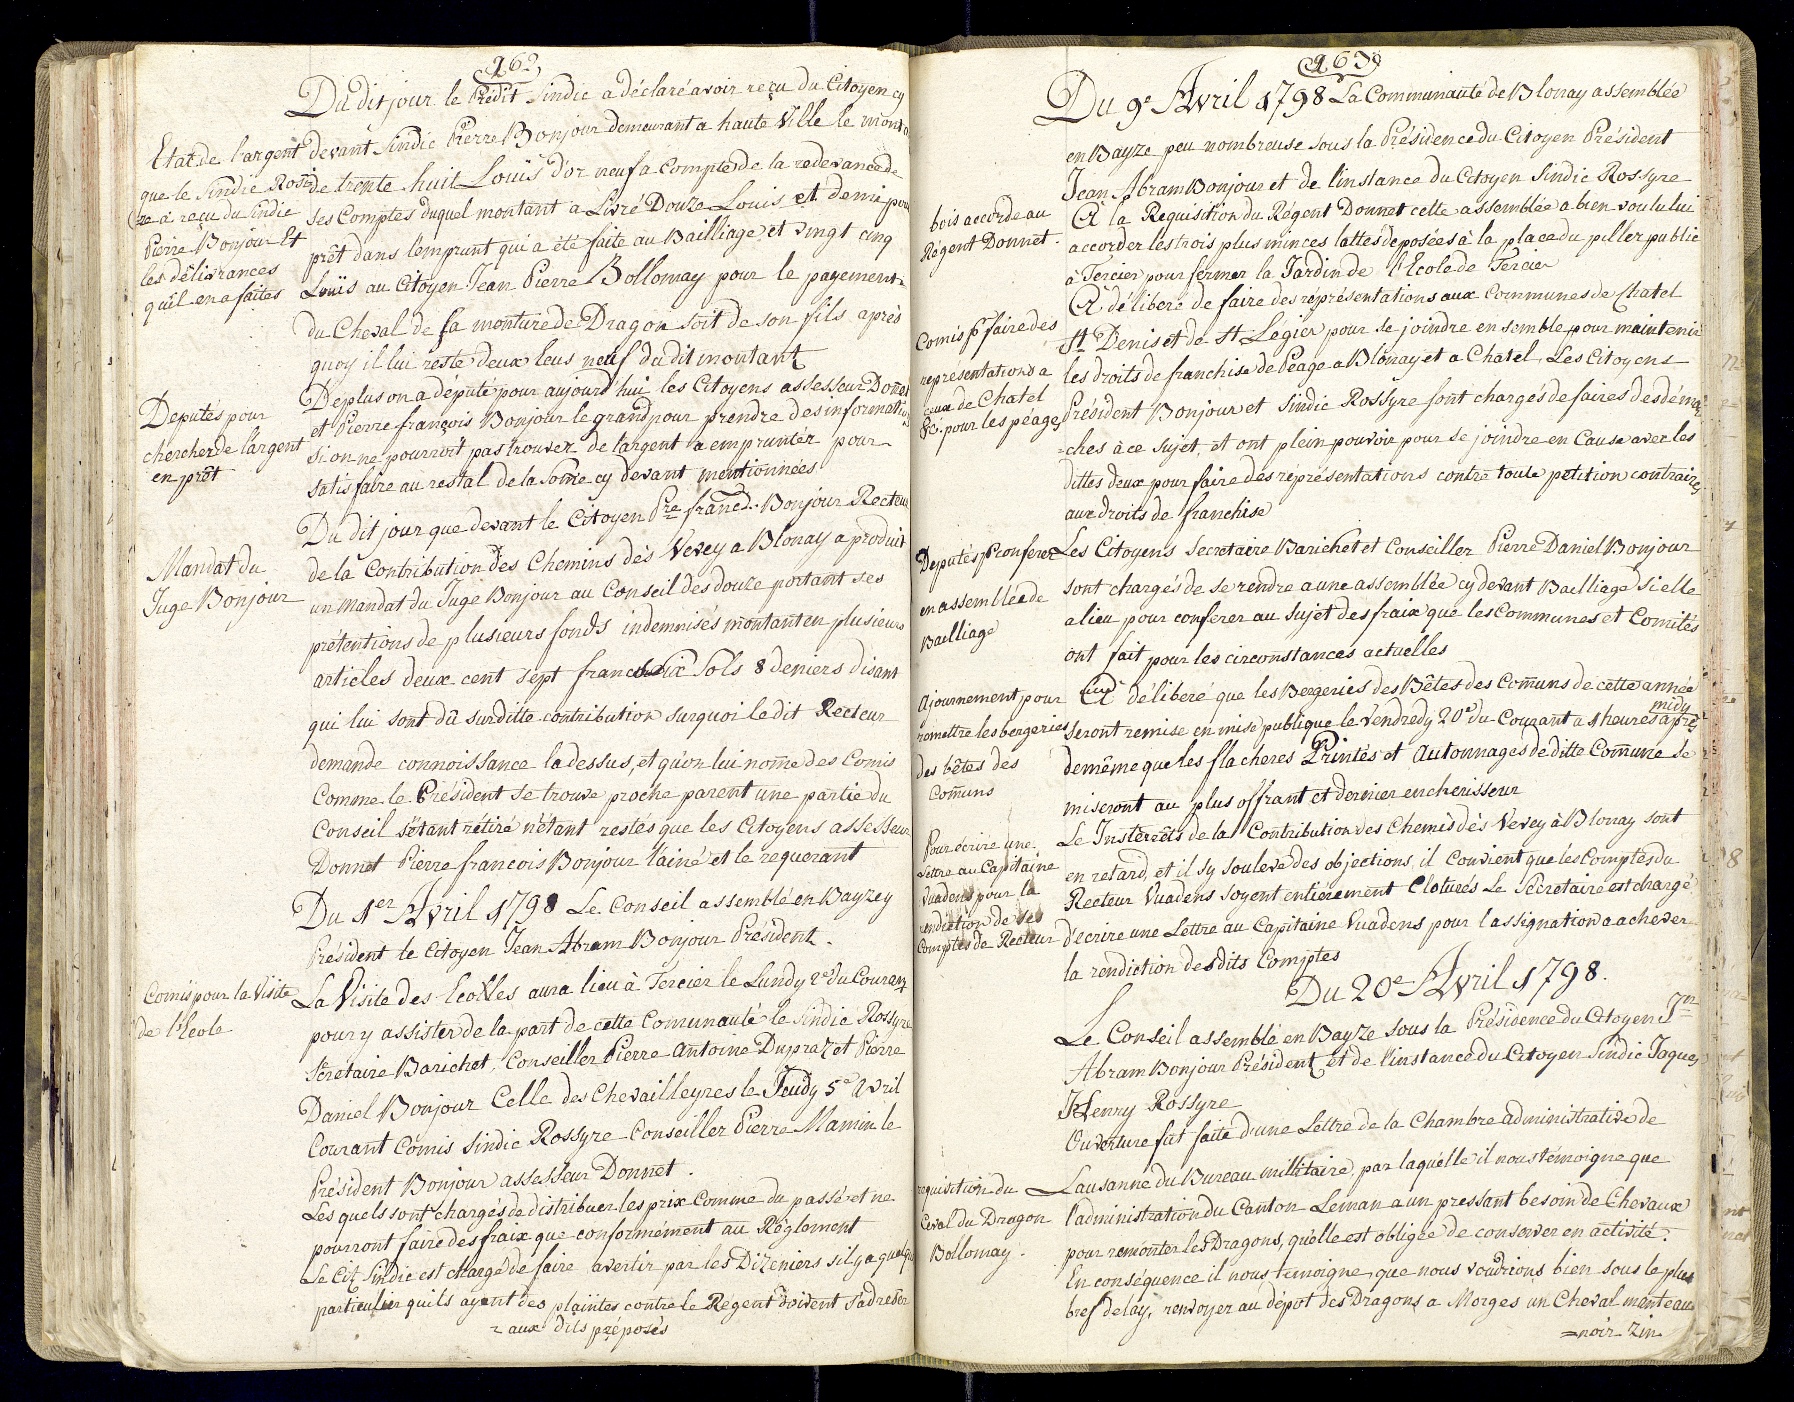 162
Du dit jour le Prédit Sindic a déclaré avoir reçu du Citoyen cy
devant Sindic Pierre Bonjour demeurant a haute Ville le montt
Etat de l'argent
que le Sindic Rossi
re a reçu du Sindic
Pierre Bonjour Et
les délivrances
qu'il en a faites
de trente huit Louis d'or neuf a Compte de la redevance de
ses Comptes duquel montant a Livré Douze Louis et demi pour
prêt dans l'emprunt qui a été faite au Bailliage et vingt cinq
Louïs au Citoyen Jean Pierre Bollomay pour le payement
du Cheval de sa monture de Dragon soit de son fils après
quoy il lui reste deux leus neuf du dit montant
Deputés pour
chercher de l'argent
en prêt
De plus on a député pour aujourd'hui les Citoyens assesseur Donnet
et Pierre françois Bonjour le grand pour prendre des information
si on ne pourroit pas trouver de l'argent a emprunter pour
satisfaire au restal de la some cy devant mentionnées
Mandat du
Juge Bonjour
Du dit jour que devant le Citoyen Pre francd. Bonjour Recteur
de la Contribution des Chemins dès Vevey a Blonay a produit
un Mandat du Juge Bonjour au Conseil des douze portant ses
prétentions de plusieurs fonds indemnisés montant en plusieurs
articles deux cent sept francs six Sols 8 deniers disant
qui lui sont dû sur ditte contribution surquoi le dit Recteur
demande connoissance la dessus, et qu'on lui nome des Comis
Comme le Président se trouve proche parent une partie du
Conseil s'étant rétiré n'étant restés que les Citoyens assesseur
Donnet Pierre francois Bonjour l'ainé et le requerant
Du 1er Avril 1798 Le Conseil assemblé en Bayzey
Président le Citoyen Jean Abram Bonjour Président.
Comis pour la Visite
de l'Ecole
La Visite des Ecolles aura lieu à Tercier le Lundy 2e du Courant
pour y assister de la part de cette Comunauté le Sindic Rossyre
Secretaire Barichet, Conseiller Pierre Antoine Dupraz et Pierre
Daniel Bonjour Celle des Chevailleyres le Jeudy 5e Avril
Courant Comis Sindic Rossyre Conseiller Pierre Mamin le
Président Bonjour assesseur Donnet.
Les quels sont chargés de distribuer les prix comme du passé et ne
pourront faire des fraix que conformément au Réglement
Le Cit Sindic est chargé de faire avertir par les Dizeniers s'il y a quelque
particulier qu'ils ayent des plaintes contre le Régent doivent s'adresser
aux dits préposés
163
Du 9e Avril 1798 La Communauté de Blonay assemblée
en Bayze peu nombreuse sous la Présidence du Citoyen Président
Jean Abram Bonjour et de l'instance du Citoyen Sindic Rossyre
bois accorde au
Régent Donnet.
A la Requisition du Régent Donnet cette assemblée a bien voulu lui
accorder les trois plus minces lattes deposées à la place du piller public
à Tercier pour fermer la Jardin de l'Ecole de Tercier
Comis pr faire des
representations a
ceux de Chatel
&c. pour les péages
A délibéré de faire des réprésentations aux Communes de Chatel
St Denis et de St Legier pour se joindre ensemble pour maintenir
les droits de franchise de Péage a Blonay et a Chatel, Les Citoyens
Président Bonjour et Sindic Rossyre sont chargés de faires des démar
=ches à ce sujet, et ont plein pouvoir pour se joindre en Cause aver les
dittes deux pour faire des représentations contre toute petition contraires
aux droits de franchise
Deputés pr conferer
en assemblée de
Bailliage
Les Citoyens Secretaire Barichet et Conseiller Pierre Daniel Bonjour
sont chargés de se rendre a une assemblée cy devant Bailliage si elle
a lieu pour conferer au sujet des fraix que les Communes et Comités
ont fait pour les circonstances actuelles
Ajournement pour
remettre les bergeries
des bêtes des
Comuns
A délibéré que les Bergeries des Bêtes des Comuns de cette année
seront remise en mise publique le Vendredy 20e du Courant a 1 heures apres
midy
demême que les flacheres Printés et Automnages de ditte Comune se
miseront au plus offrant et dernier encherisseur
Pour écrire une
Lettre au Capitaine
Vuadens pour la
rendiction de ses
Comptes de Recteur
Le Insterrêts de la Contribution des Chemis dès Vevey à Blonay sont
en retard, et il s'y souleve des objections, il convient que les Comptes du
Recteur Vuadens soyent entierement Cloturés Le Sécretaire est chargé
d'écrire une Lettre au Capitaine Vuadens pour l'assignation a achever
la rendiction des dits Comptes
Du 20e Avril 1798.
Le Conseil assemblé en Bayze sous la Présidence du Citoyen Jn
Abram Bonjour Président et de l'instance du Citoyen Sindic Jaques
Henry Rossyre
requisition du
Ceval du Dragon
Bollomay.
Ouverture fut faite d'une Lettre de la Chambre administrative de
Lausanne du Bureau millitaire, par laquelle il nous témoigne que
l'administration du Canton Leman a un pressant besoin de Chevaux
pour remonter les Dragons, qu'elle est obligée de conserver en activité.
En conséquence il nous témoigne que nous voudrions bien sous le plus
bref delay, renvoyer au dépot des Dragons a Morges un Cheval manteau
=noir zin